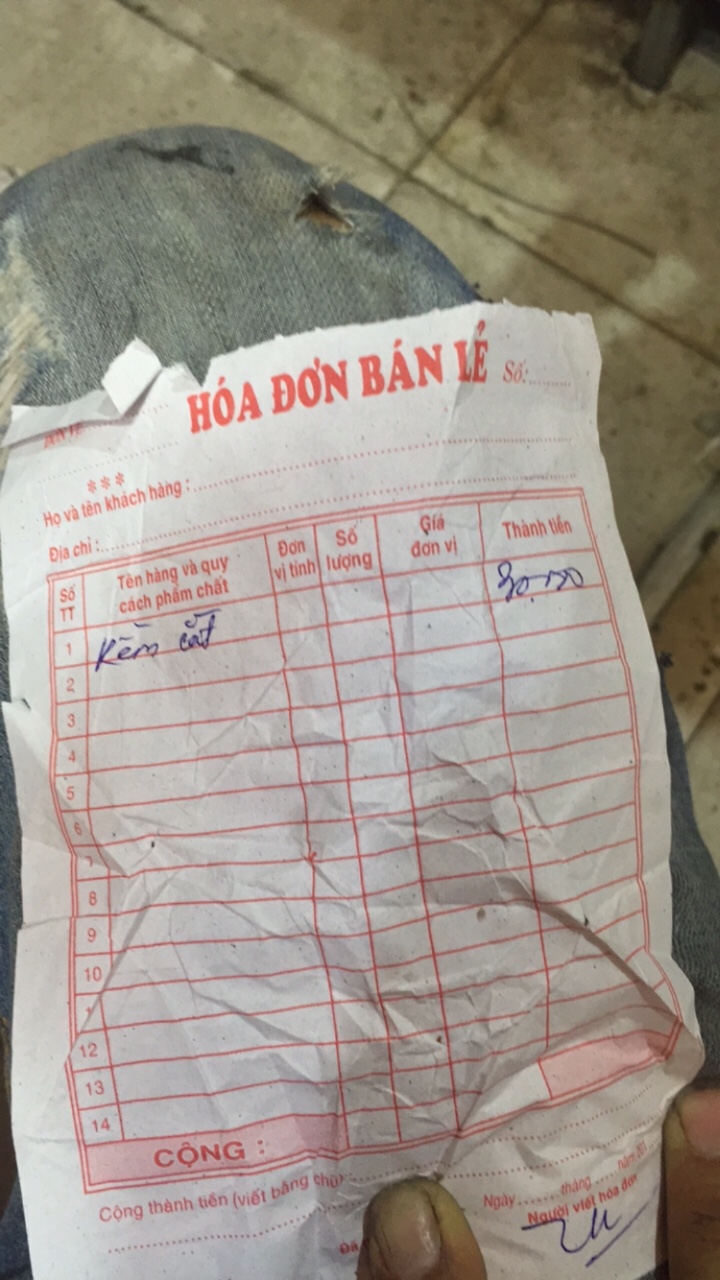 HÓA ĐƠN BÁN LẺ Số:
***
Họ và tên khách hàng :
Địa chỉ :
Số TT Tên hàng và quy cách phẩm chất Đơn vị tính Số lượng Giá đơn vị Thành tiền
1 Kềm cắt
2
3
4
5
6
7
8
9
10
12
13
14
CỘNG :
Cộng thành tiền (viết bằng chữ)
Ngày tháng năm 201
Người viết hóa đơn